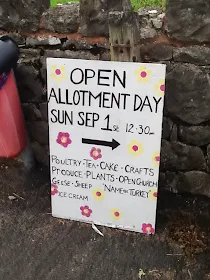 OPEN
ALLOTMENT DAY
SUN SEP 1ST 12.30PM
POULTRY-TEA-CAKE-CRAFTS
PRODUCE-PLANTS-OPEN CHURCH
GEESE-SHEEP "NAME THE TURKEY"
ICE CREAM